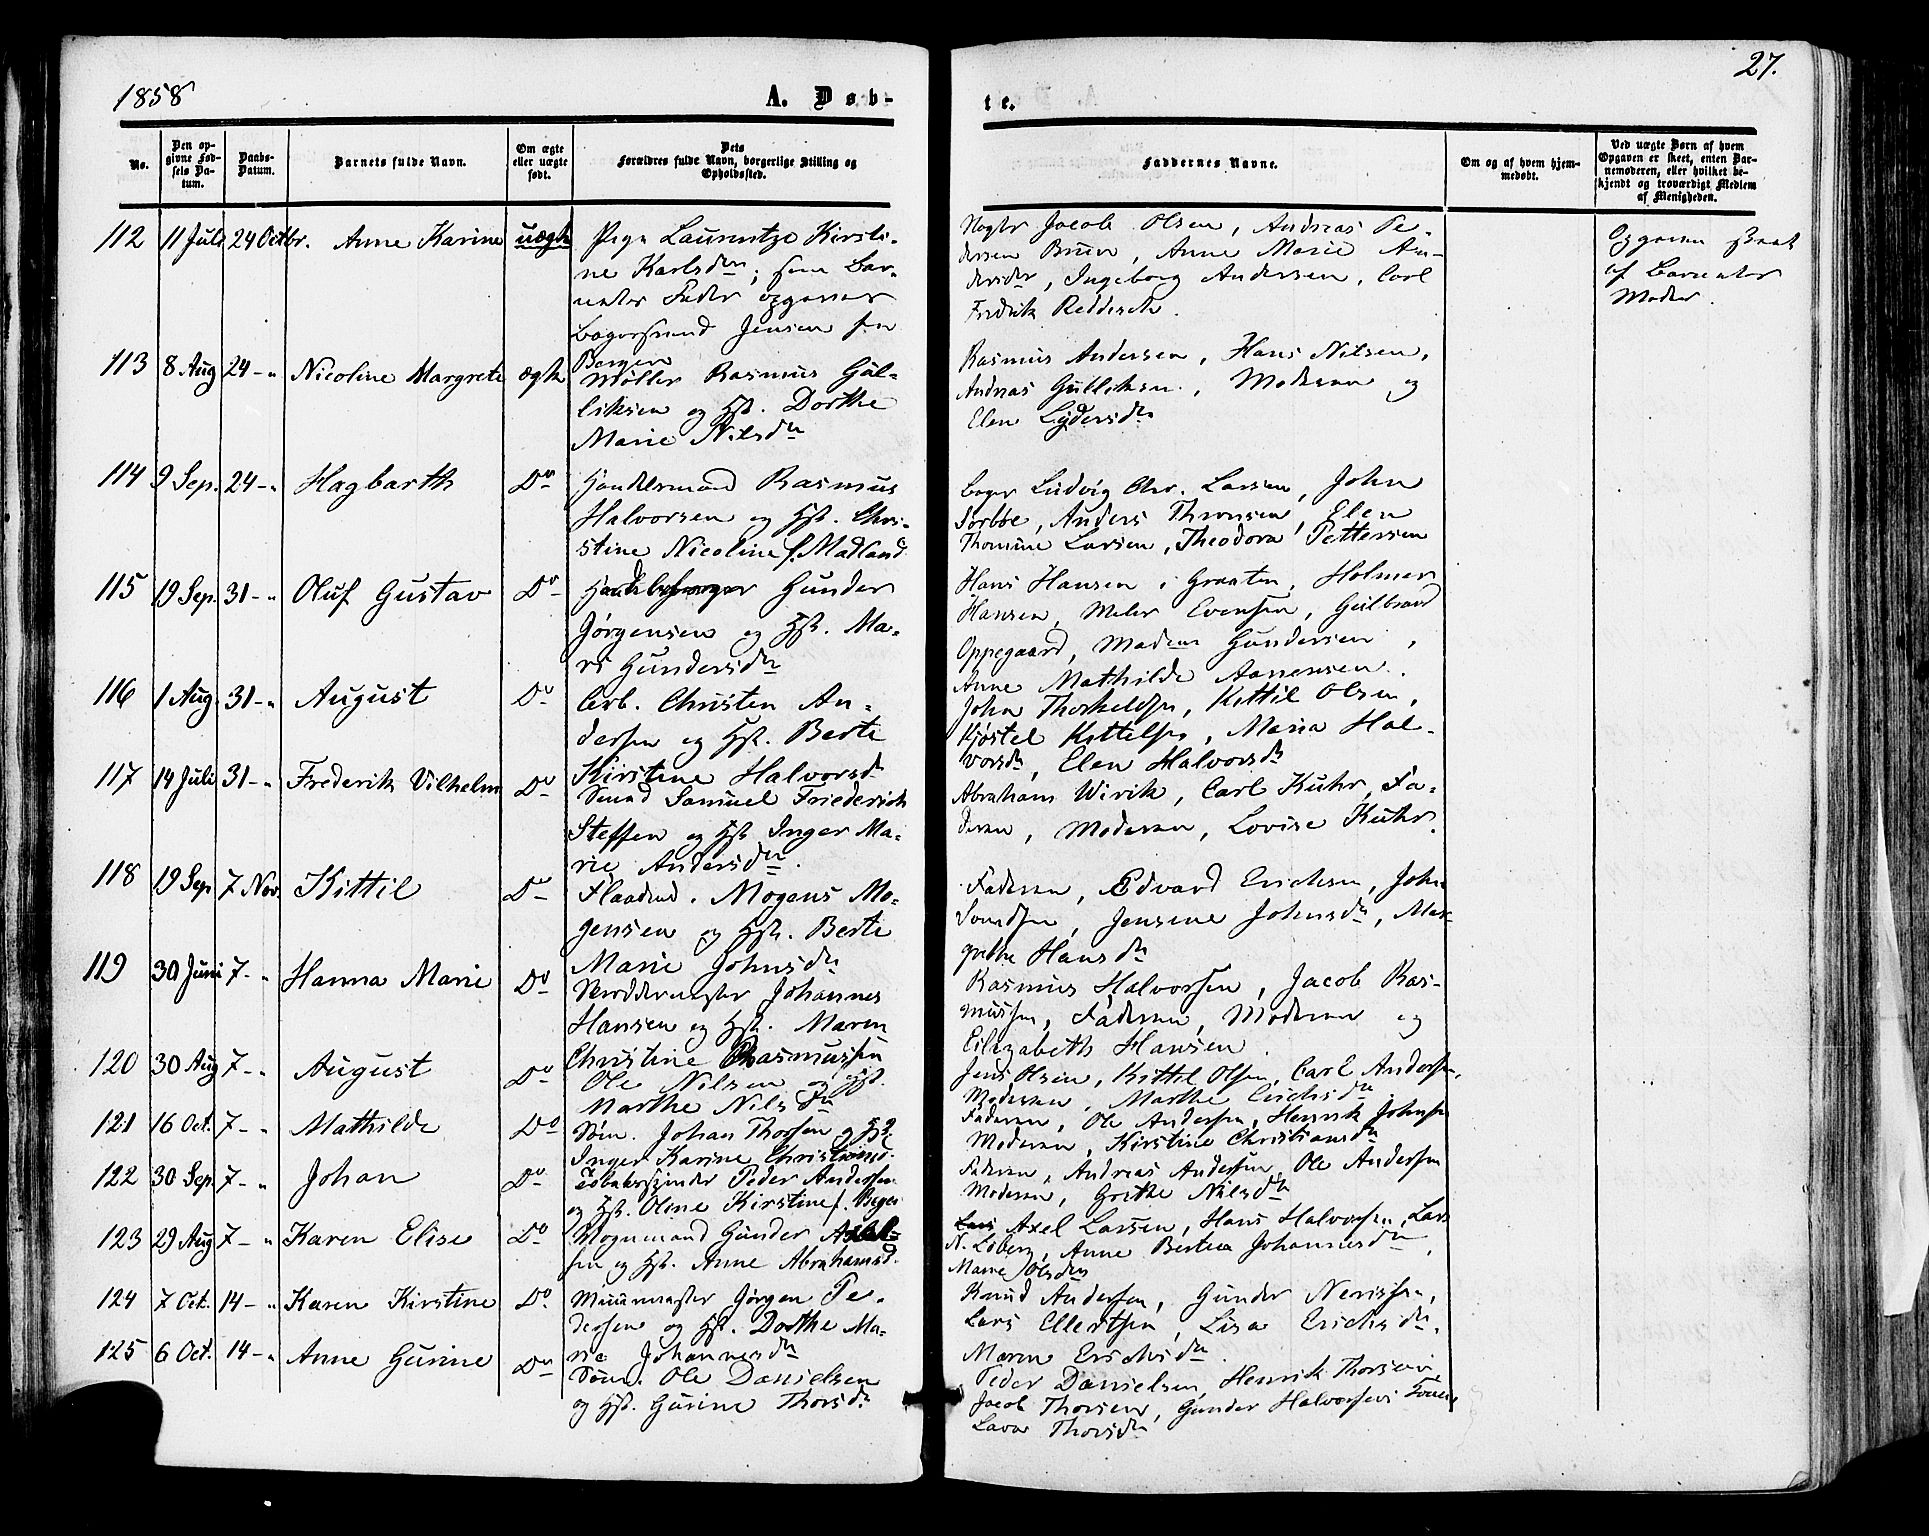 1858
A. Døb-
te.
27.
No.
Den opgivne Fødsels Datum.
Daabs-Datum.
Barnets fulde Navn.
Om ægte eller uægte født.
Dets Forældres fulde Navn, borgerlige Stilling og Opholdssted.
Faddernes Navne.
Om og af hvem hjemmedøbt.
Ved uægte Børn af hvem Opgaven er skeet, enten Barnemoderen, eller hvilket bekjendt og troværdigt Medlem af Menigheden.
112 11 Juli 24 Octbr. Anne Karine uægte Pige Laurentze Kirsti-
ne Karlsdtr; som Bar-
nets Fader opgives
Jensen fra
Bergen
Jacob Olsen, Andreas Pe-
dersen Bruun, Anne Marie An-
dersdtr, Ingeborg Andersen, Carl
Fredrik Reddisch.
Opgaven skeet
af Barnets
Moder.
113 8 Aug 24 - " Nicoline Margrete ægte Møller Rasmus Gul-
liksen og Hst. Dorthe
Marie Nilsdtr
Rasmus Andersen, Hans Nilsen,
Andreas Gulliksen, Moderen og
Elen Lydersdtr
114 9 Sep. 24 - " Hagbarth Do Handelsmand Rasmus
Halvorsen og Hst. Chri-
stine Nicoline f. Madland
Ludvig Chr. Larsen, John
Sorbbe, Anders Thomsen, Elen
Thomine Larsen, Theodora Pettersen
115 19 Sep. 31 - " Oluf Gustav Do Gunder
Jørgensen og Hst. Ma-
ri Gundersdtr
Hans Hansen i Graaten, Holmer
Hansen, Evensen, Gulbrand
Oppegaard, Madam Gundersen,
Anne Mathilde Aanensen.
116 1 Aug. 31 - " August Do Arb. Christen An-
dersen og Hst. Berte
Kirstine Halvorsd
John Thorkeldsen, Kittil Olsen,
Kjøstel Kittelsen, Maria Hal-
vorsdtr, Elen Halvorsdtr
117 14 Juli 31 - " Frederik Vilhelm Do Smed Samuel Friederich
Steffen og Hst Inger Ma-
rie Andersdtr.
Abraham Wirik, Carl Kuhr, Fa-
deren, Moderen, Lovise Kuhr.
118 19 Sep 7 Nov. Kittil Do Mogens Mo-
gensen og Hst. Berte
Marie Johnsdtr
Faderen, Edvard Erichsen, John
Jensine Johnsdtr, Mar-
grethe Hansdtr
119 30 Juni 7 - " Hanna Marie Do Johannes
Hansen og Hst. Maren
Christine Rasmussen
Rasmus Halvorsen, Jacob Ras-
mussen, Faderen, Moderen og
Elizabeth Hansen.
120 30 Aug 7 - " August Do Ole Nilsen og Hst.
Marthe Nilsdtr
Jens Olsen, Kittil Olsen, Carl Andersen,
Moderen, Marthe Erichsdtr
121 16 Oct. 7 - " Mathilde Do Søm. Johan Thorsen og Hst
Inger Karine Christiansd.
Faderen, Ole Andersen, Henrik Johnsen
Moderen, Kirstine Christiansdtr
122 30 Sep. 7 - " Johan Do Tobakspinder Peder Andersen
og Hst. Oline Kirstine f.
Faderen, Andreas Andersen, Ole Andersen
Moderen, Grethe Nilsdtr
123 29 Aug 7 - " Karen Elise Do Vognmand Gunder
sen og Hst. Anne Abrahamsd.
Axel Larsen, Hans Halvorsen, Lars
N. Løberg, Anne Bertea Johannesdtr,
Marie Olsdtr
124 7 Oct. 14 - " Karen Kirstine Do Muurmester Jørgen Pe-
dersen og Hst. Dorthe Ma-
rie Johannesdtr
Knud Andersen, Gunder Nerissen,
Lars Ellertsen, Lisa Erichsdtr.
Maren Erichsdtr.
125 6 Oct. 14 - " Anne Gurine Do Søm. Ole Danielsen
og Hst. Gurine Thorsdtr
Peder Danielsen, Henrik Thorsen,
Jacob Thorsen, Gunder Halvorsens
Lava Thorsdtr